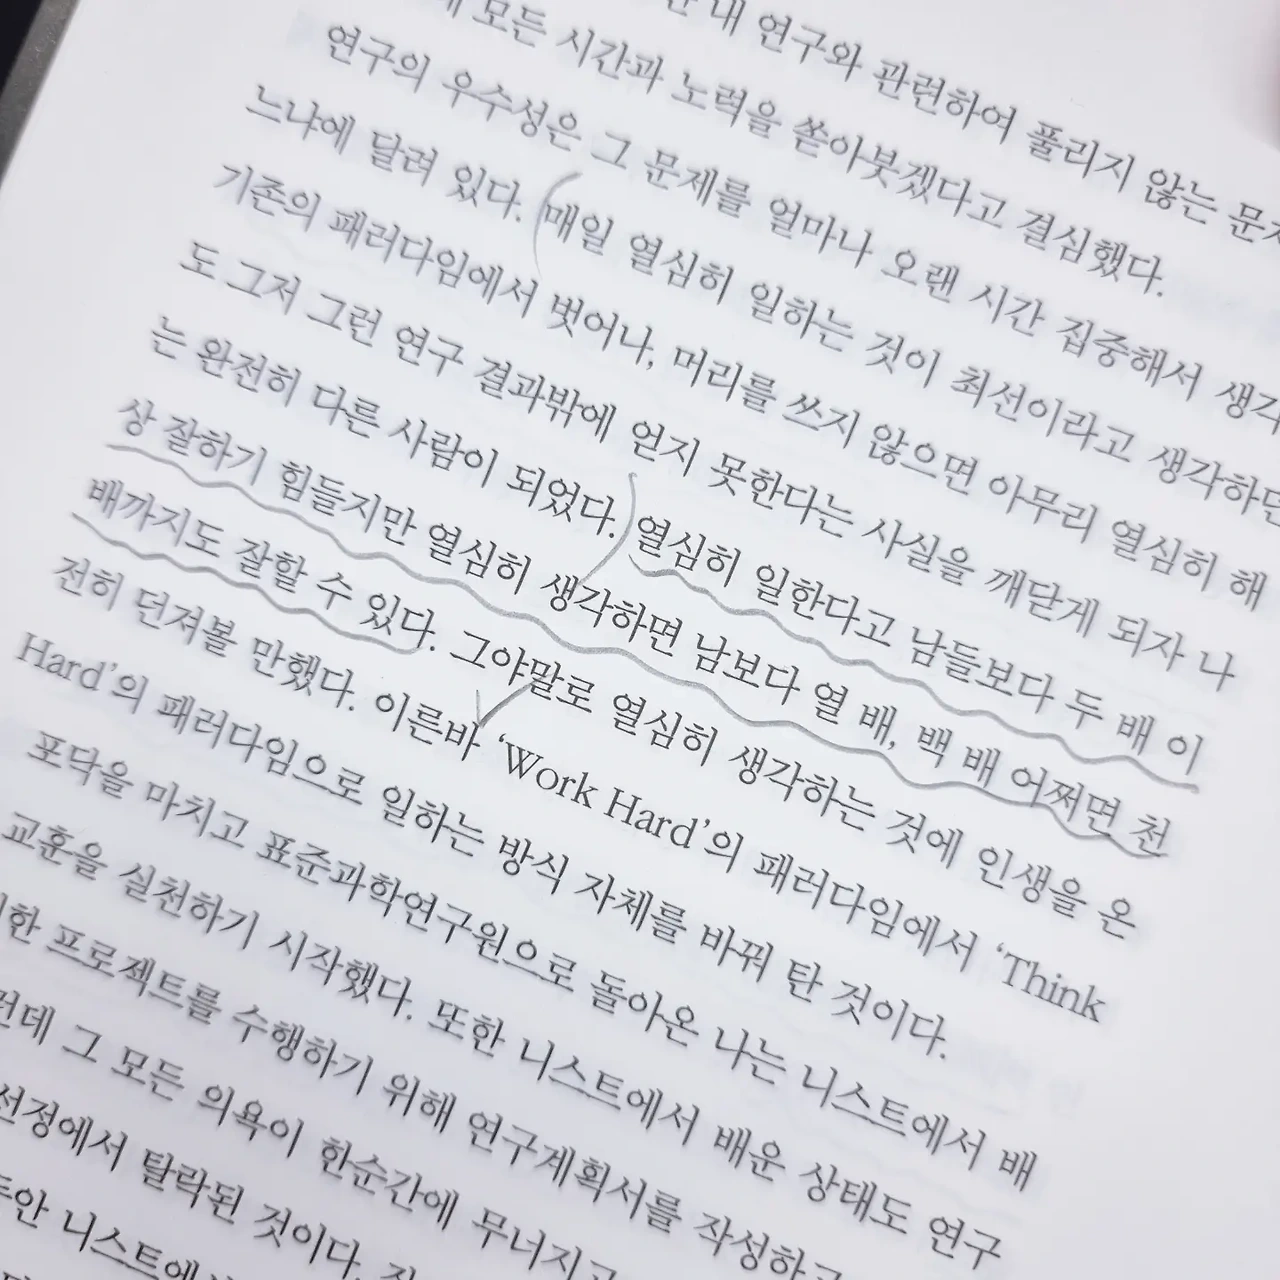 내 연구와 관련하여 풀리지 않는
모든 시간과 노력을 쏟아붓겠다고 결심했다.
연구의 우수성은 그 문제를 얼마나 오랜 시간 집중해서 생각
느냐에 달려 있다. 매일 열심히 일하는 것이 최선이라고 생각하던
기존의 패러다임에서 벗어나, 머리를 쓰지 않으면 아무리 열심히 해
도 그저 그런 연구 결과밖에 얻지 못한다는 사실을 깨닫게 되자 나
는 완전히 다른 사람이 되었다. 열심히 일한다고 남들보다 두 배 이
상 잘하기 힘들지만 열심히 생각하면 남보다 열 배, 백 배 어쩌면 천
배까지도 잘할 수 있다. 그야말로 열심히 생각하는 것에 인생을 온
전히 던져볼 만했다. 이른바 ‘Work Hard’의 패러다임에서 ‘Think
Hard’의 패러다임으로 일하는 방식 자체를 바꿔 탄 것이다.
포닥을 마치고 표준과학연구원으로 돌아온 나는 니스트에서 배
교훈을 실천하기 시작했다. 또한 니스트에서 배운 상태도 연구
한 프로젝트를 수행하기 위해 연구계획서를 작성하고
런데 그 모든 의욕이 한순간에 무너지고
선정에서 탈락된 것이다.
니스트에